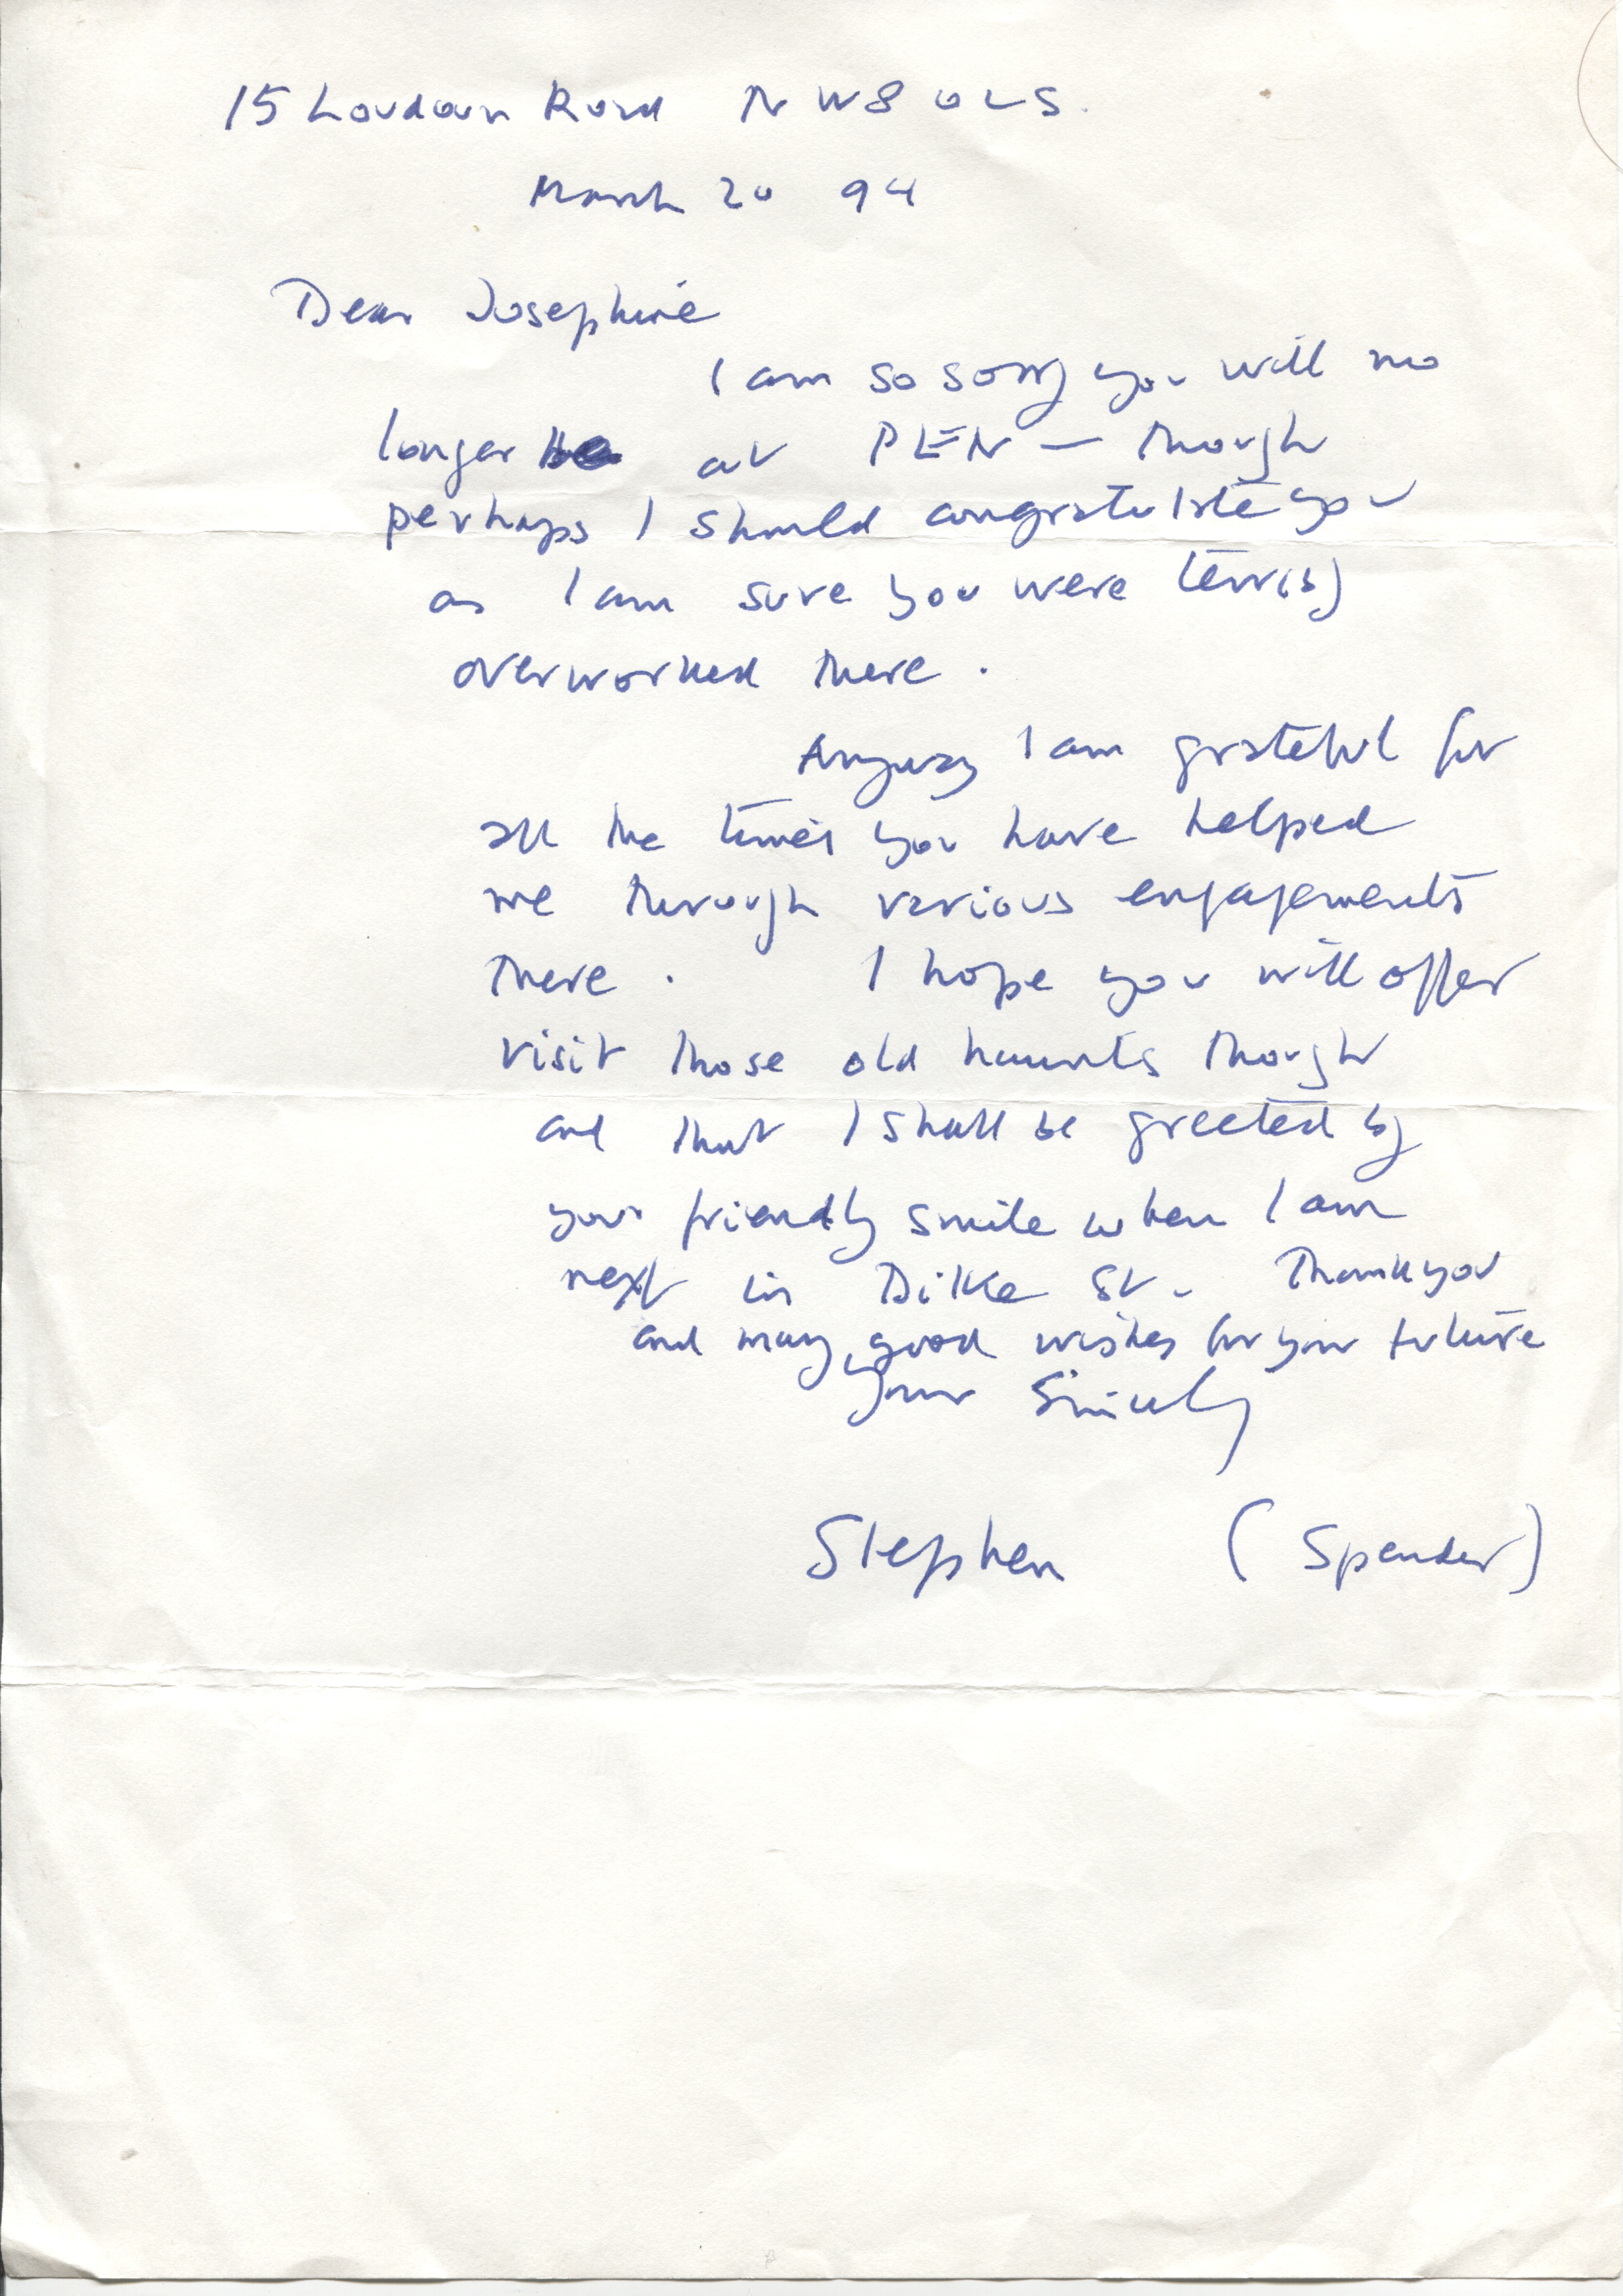 15 Loudoun Road NW8 0LS.
March 20 94
Dear Josephine
I am so sorry you will no
longer be at PEN — though
perhaps I should congratulate you
as I am sure you were
overworked there.
Anyway I am grateful for
all the times you have helped
me through various engagements
there. I hope you will offer
visit those old haunts though
and that I shall be greeted by
your friendly smile when I am
next in Dilke St. Thank you
and many good wishes for your future
Yours Sincerely
Stephen (Spender)